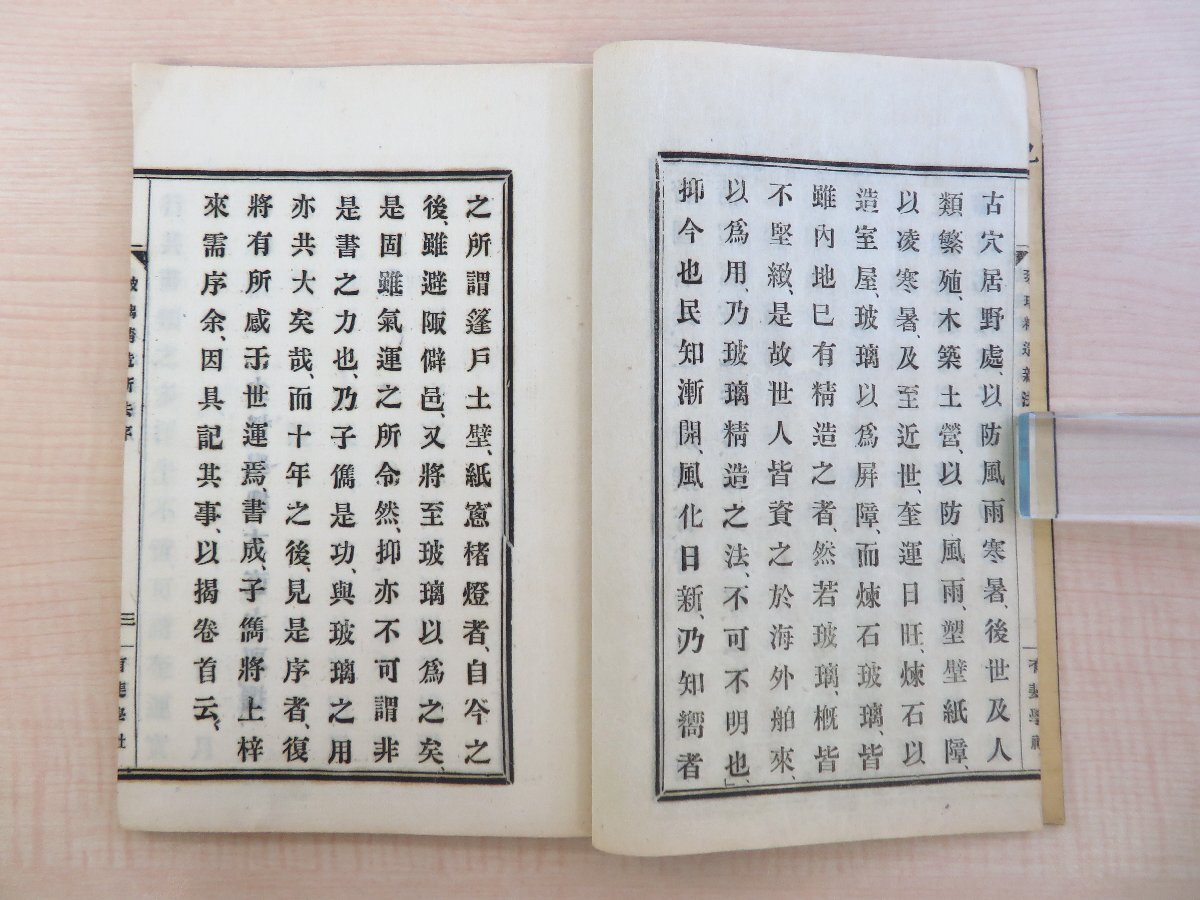 古穴居野處、以防風雨寒暑、後世及人
類繁殖、木築土營、以防風雨、塑壁紙障、
以凌寒暑、及至近世、奎運日旺、煉石以
造室屋、玻璃以爲屏障、而煉石玻璃、皆
雖內地已有精造之者、然若玻璃、概皆
不堅緻、是故世人皆資之於海外舶來、
以爲用、乃玻璃精造之法、不可不明也、」
抑今也民知漸開、風化日新、乃知嚮者
之所謂篷戶土壁、紙窻楮燈者、自今之
後、雖避陬僻邑、又將至玻璃以爲之矣、
是固雖氣運之所令然、抑亦不可謂非
是書之力也、乃子儁是功、與玻璃之用
亦共大矣哉、而十年之後、見是序者、復
將有所感于世運焉、書成、子儁將上梓
來需序余、因具記其事、以揭卷首云、
三